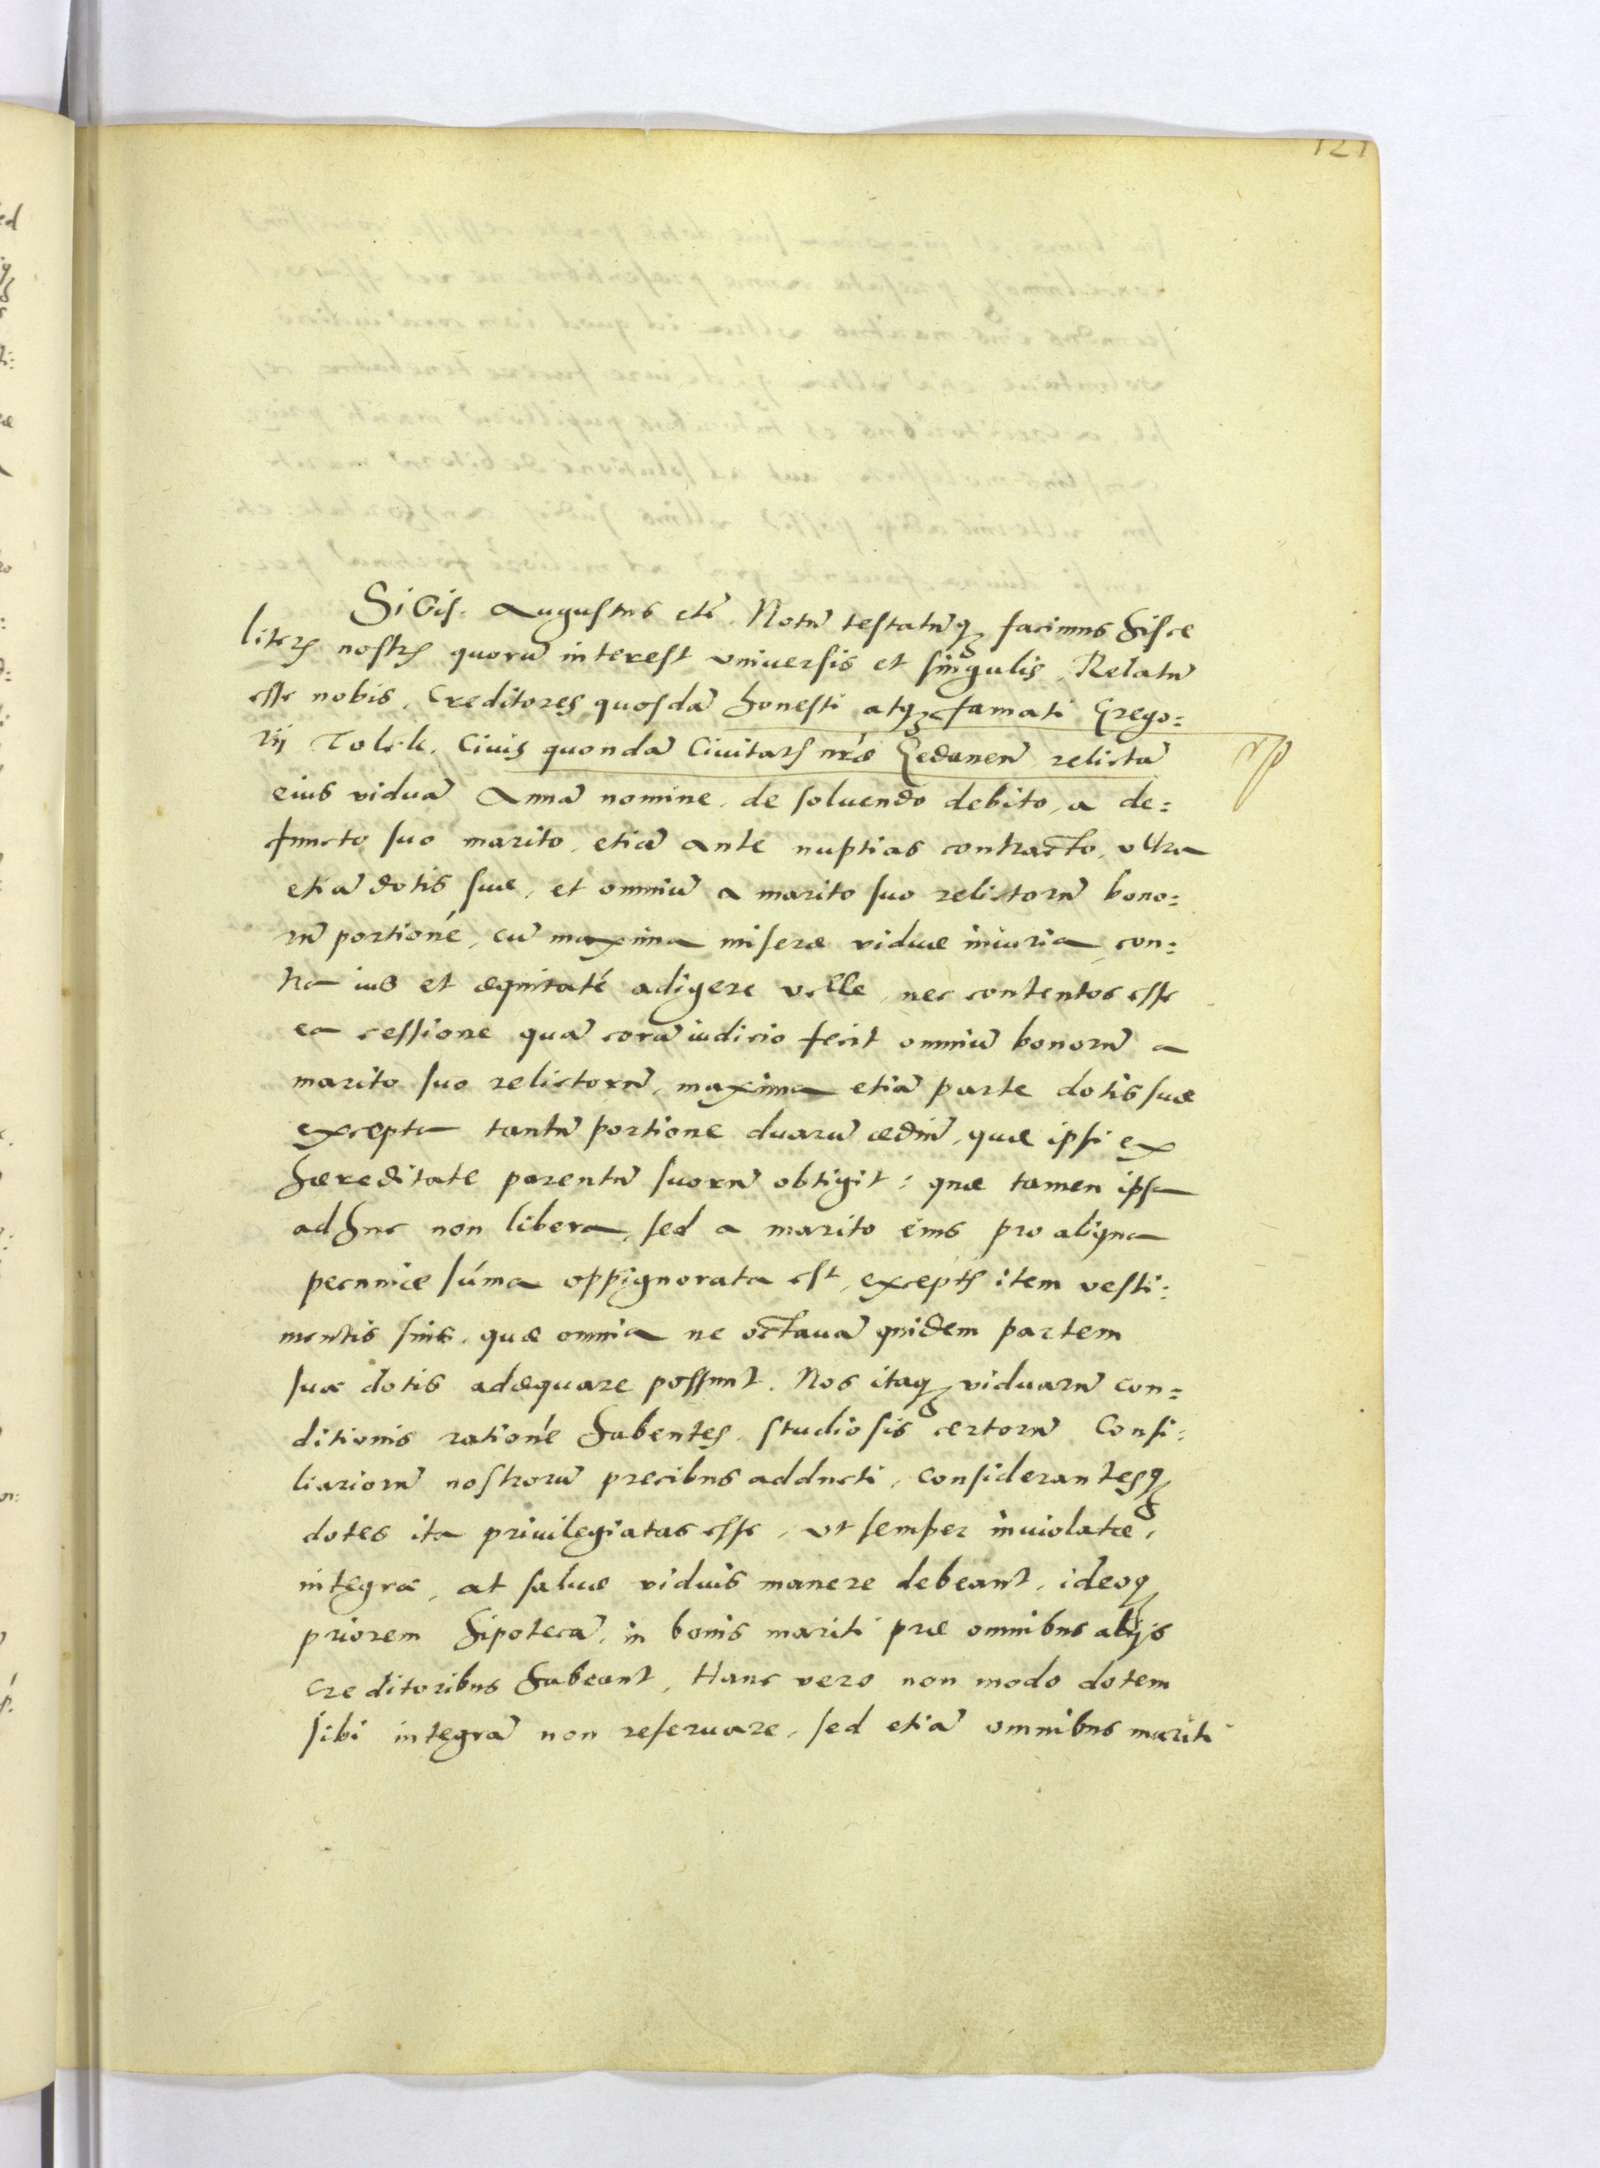 121
Sigis. Augustus etc̃. Notũ testatũq; facimus hisce
literis nostris quorũ interest vniversis et singulis, Relatũ
esse nobis, Creditores quosdã honesti atq; famati Grego=
rij Tolck, Civis quondã Civitatis nr̃æ Gedanen̄ relictã
eius viduã Annã nomine, de soluendo debito, a de=
functo suo marito, etiã ante nuptias contracto, vltra
etiã dotis suæ, et omniũ a marito suo relictorũ bono=
rũ portionẽ, cũ maxima miseræ viduæ iniuria, con=
tra ius et æquitatẽ adigere velle, nec contentos esse
ea cessione quã corã iudicio fecit omniũ bonorũ a
marito suo relictorũ, maxima etiã parte dotis suæ
excepta tantũ portione duarũ ædiũ, quæ ipsi ex
hæreditate parentũ suorũ obtigit: quæ tamen ipsa
adhuc non libera, sed a marito eius pro aliqua
pecuniæ sũma oppignorata est, exceptis item vesti:
mentis suis, quæ omnia ne octavã quidem partem
suæ dotis adæquare possunt. Nos itaq; viduarũ con=
ditionis rationẽ habentes, studiosis certorũ Consi:
liariorũ nostrorũ precibus adducti, considerantesq;
dotes ita privilegiatas esse, vt semper inviolatæ,
integræ, at salvæ viduis manere debeant, ideoq;
priorem hipotecã, in bonis mariti præ omnibus alijs
creditoribus habeant, Hanc vero non modo dotem
sibi integrã non reservare, sed etiã omnibus mariti